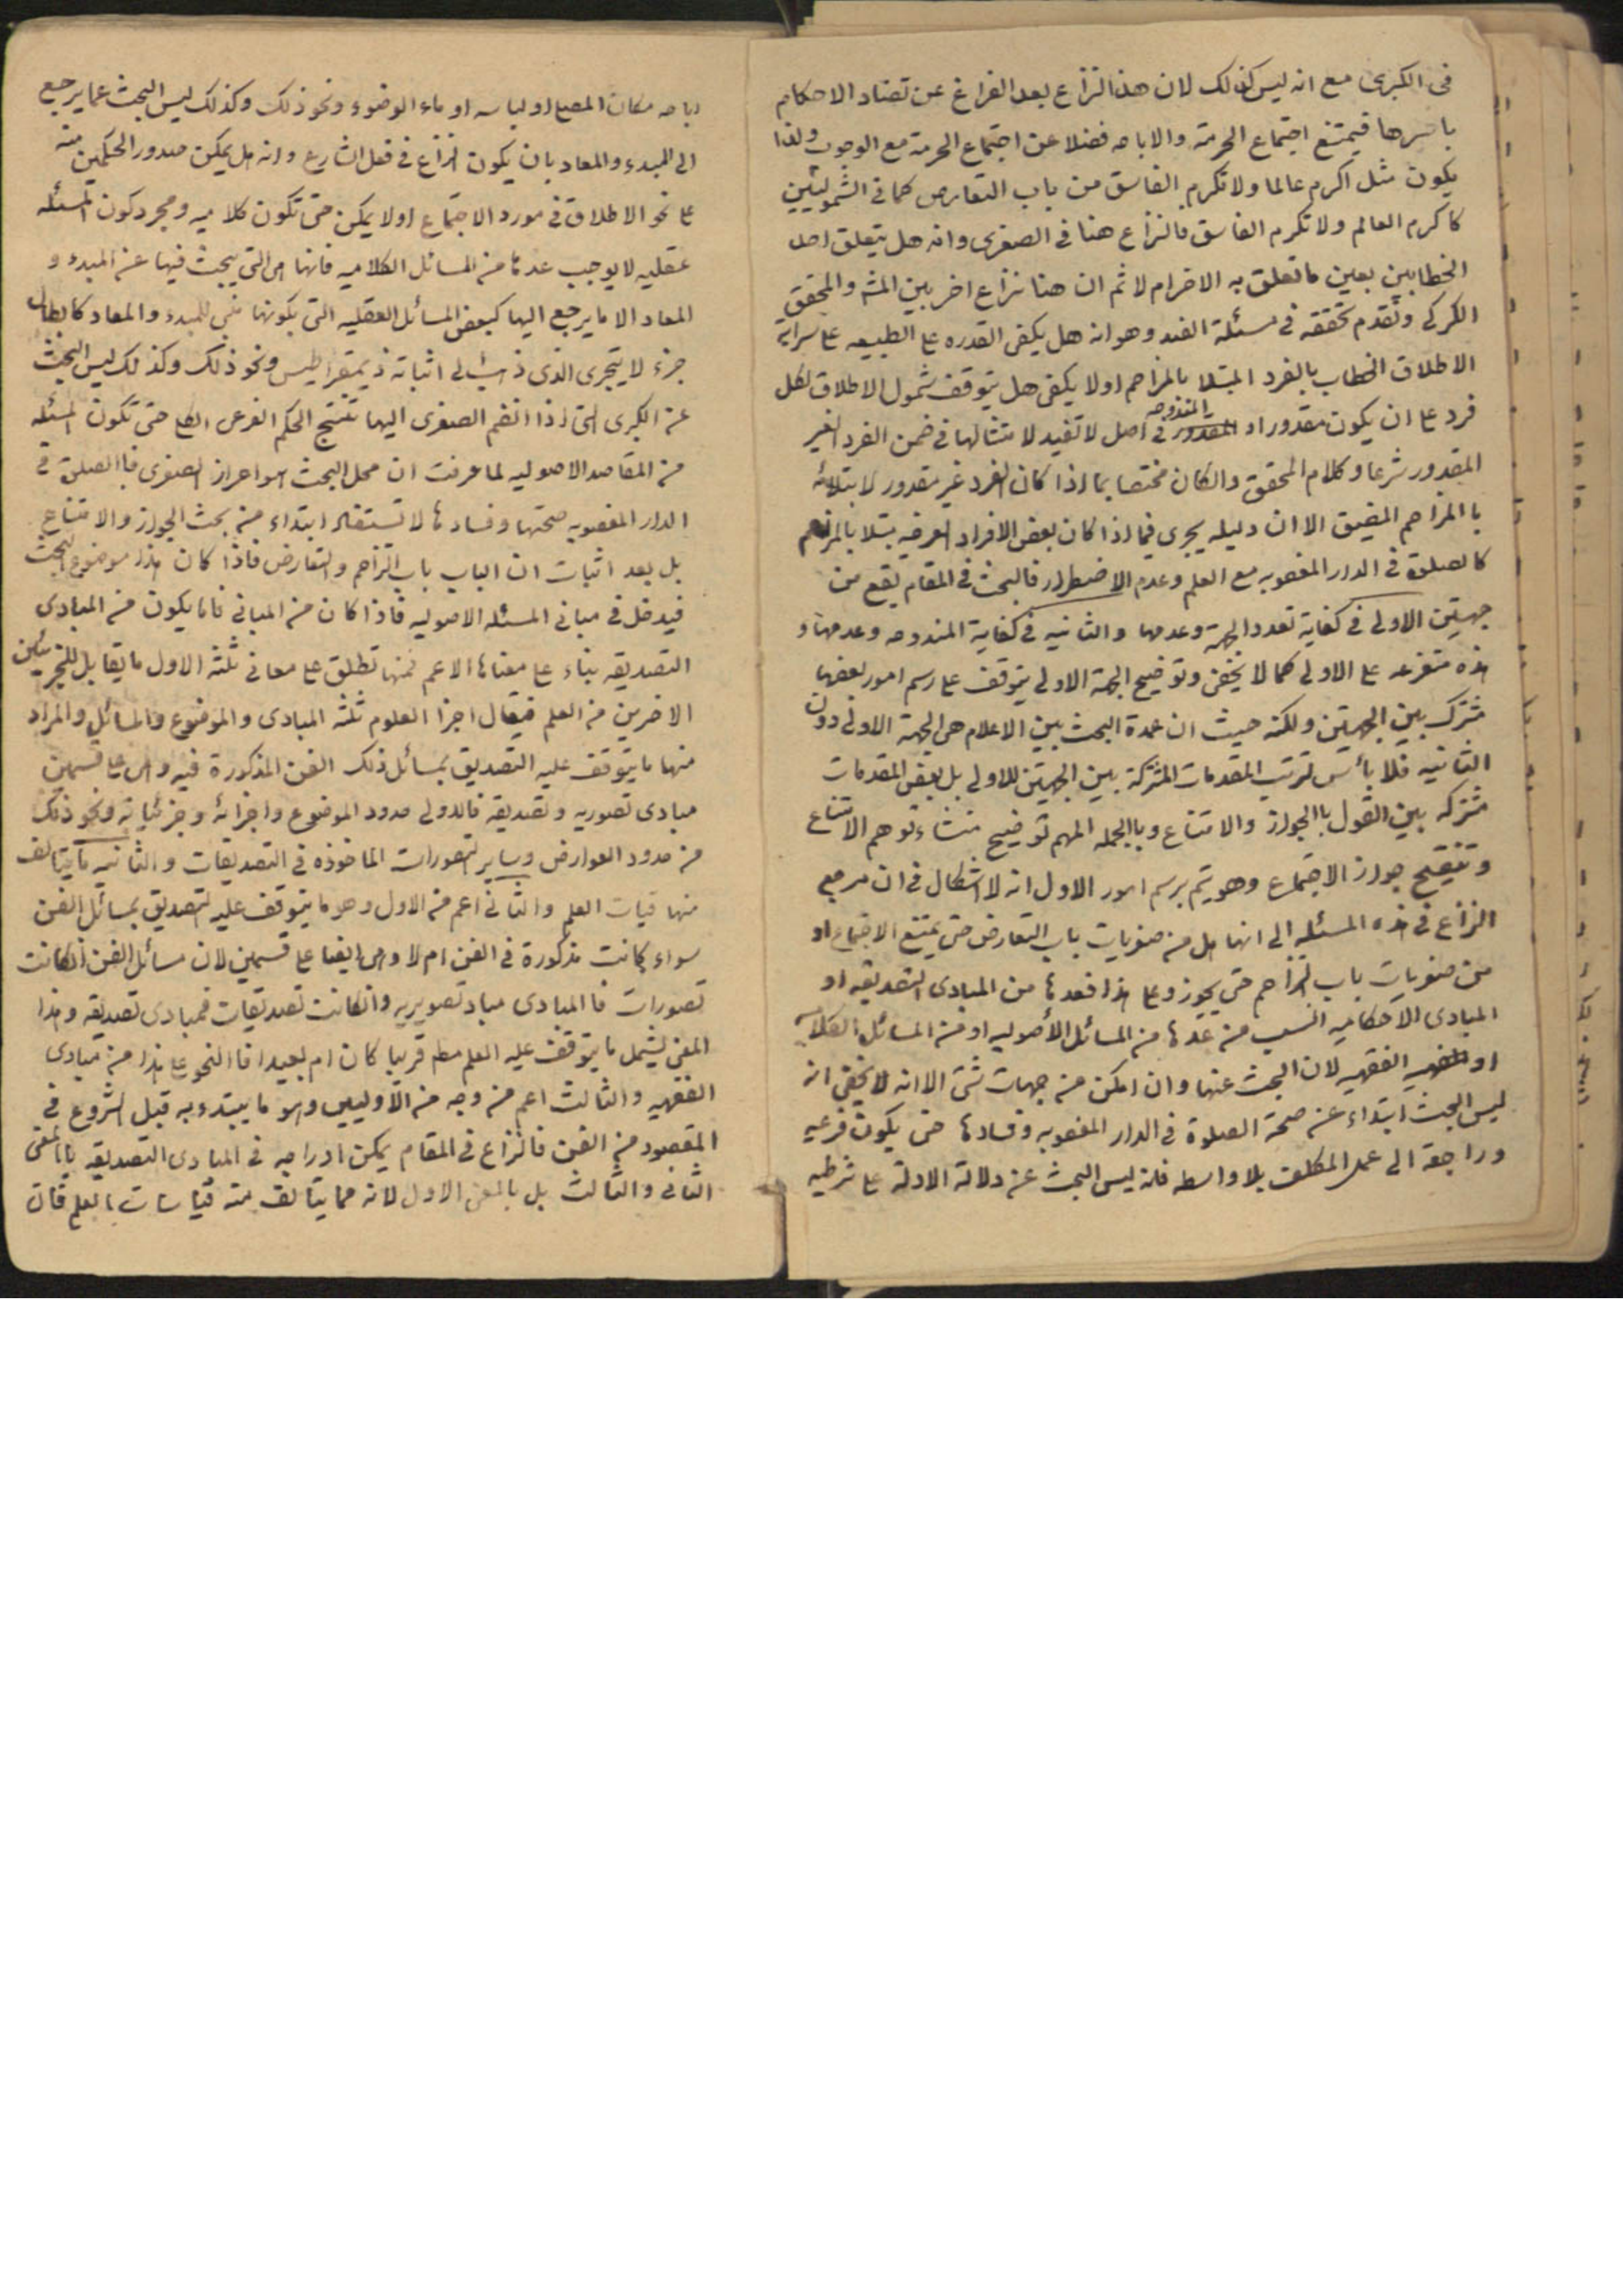 في الكبرى مع انه ليس كذلك لان هذا النزاع بعد الفراغ عن تضاد الاحكام
باسرها فيمتنع اجتماع الحرمة والاباحه فضلا عن اجتماع الحرمة مع الوجوب ولذا
يكون مثل اكرم عالما ولا تكرم الفاسق من باب التعارض كما في الشموليين
كاكرم العالم ولا تكرم الفاسق فالنزاع هنا في الصغرى وانه هل يتعلق احد
الخطابين بعين ما تعلق به الاخر ام لا ثم ان هنا نزاع اخر بين المشه والمحقق
الكركى وتقدم تحققه في مسئلة الضد وهو انه هل يكفى القدره على الطبيعه على سراية
الاطلاق الخطاب بالفرد المبتلا بالمزاحم او لا يكفى هل يتوقف شمول الاطلاق لكل
فرد على ان يكون مقدورا و المندوحه في اصل لا تفيد لامتثالها في ضمن الفرد الغير
المقدور شرعا وكلام المحقق وانكان مختصا بما اذا كان الفرد غير مقدور لابتلائه
باالمزاحم المضيق الا ان دليله يجرى فيما اذا كان بعض الافراد العرضيه مبتلا بالمزاحم
كالصلوة في الدار المغصوبه مع العلم وعدم الاضطرار فالبحث في المقام يقع من
جهتين الاولى في كفاية تعدد الجهة وعدمها والثانيه في كفاية المندوحه وعدمها و
هذه متفرعه على الاولى كما لا يخفى وتوضيح الجهة الاولى يتوقف على رسم امور بعضها
مشترك بين الجهتين ولكنه حيث ان عمدة البحث بين الاعلام هى الجهة الاولى دون
الثانيه فلا بأس لترتب المقدمات المشتركة بين الجهتين للاولى بل بعض المقدمات
مشتركه بين القول باالجواز والامتناع وباالجمله المهم توضيح منشاء توهم الامتناع
وتنقيح جواز الاجتماع وهو يتم برسم امور الاول انه لا اشكال في ان مرجع
النزاع في هذه المسئله الى انها هل من صغريات باب التعارض حتى يمتنع الاجتماع او
من صغريات باب التزاحم حتى يجوز وعلى هذا فعدها من المبادى التصديقيه او
المبادى الاحكاميه انسب من عدها من المسائل الأصوليه او من المسائل الكلاميه
او الفقهيه لان البحث عنها وان امكن من جهات شتى الا انه لا يخفى انه
ليس البحث ابتداء عن صحة الصلوة في الدار المغصوبه وفسادها حتى يكون فرعيه
وراجعة الى عمل المكلف بلا واسطه فانه ليس البحث عن دلالة الادلة على شرطيه
اباحه مكان المصلى او لباسه او ماء الوضوء ونحو ذلك وكذلك ليس البحث عما يرجع
الى المبدء والمعاد بان يكون النزاع في فعل الشارع وانه هل يمكن صدور الحكمين منه
على نحو الاطلاق في مورد الاجتماع او لا يمكن حتى تكون كلاميه ومجرد كون المسئله
عقليه لا يوجب عدها من المسائل الكلاميه فانها هى التي يبحث فيها عن المبدء و
المعاد الا ما يرجع اليها كبعض المسائل العقليه التي بكونها للمبدء والمعاد كابطال
جزء لا يتجرى الذى ذهب الى اثباته ذيمقراطيس ونحو ذلك وكذلك ليس البحث
عن الكبرى التى اذا انضم الصغرى اليها تنتج الحكم الفرعى الكلى حتى تكون المسئله
من المقاصد الاصوليه لما عرفت ان محل البحث هو احراز الصغرى فاالصلوة في
الدار المغصوبه صحتها وفسادها لا تستفاد ابتداء من بحث الجواز والامتناع
بل بعد اثبات ان الباب باب التزاحم والتعارض فاذا كان هذا موضوع البحث
فيدخل في مبانى المسئله الاصوليه فاذا كان من المبانى فاما يكون من المبادى
التصديقيه بناء على معناها الاعم فمنها تطلق على معانى ثلثه الاول ما يقابل للجزئين
الاخرين من العلم فيقال اجزا العلوم ثلثه المبادى والموضوع والمسائل والمراد
منها ما يتوقف عليه التصديق بمسائل ذلك الفن المذكورة فيه وهى على قسمين
مبادى تصوريه وتصديقيه فالاولى حدود الموضوع واجزائه وجزئياته ونحو ذلك
من حدود العوارض وساير التصورات الماخوذه في التصديقات والثانيه ما يتالف
منها قياسات العلم والثانى اعم من الاول وهو ما يتوقف عليه التصديق بمسائل الفن
سواء كانت مذكورة في الفن ام لا وهى ايضا على قسمين لان مسائل الفن انكانت
تصورات فاالمبادى مباد تصويريه وانكانت تصديقات فمبادى تصديقيه وهذا
المعنى يشمل ما يتوقف عليه العلم مط قريبا كان ام بعيدا فاالنحو على هذا من مبادى
الفقهيه والثالث اعم من وجه من الاوليين وهو ما يبتدء به قبل الشروع في
المقصود من الفن فالنزاع في المقام يمكن ادراجه في المبادى التصديقيه باالمعنى
الثانى والثالث بل بالمعنى الاول لانه مما يتالف منه قياسات العلم فان